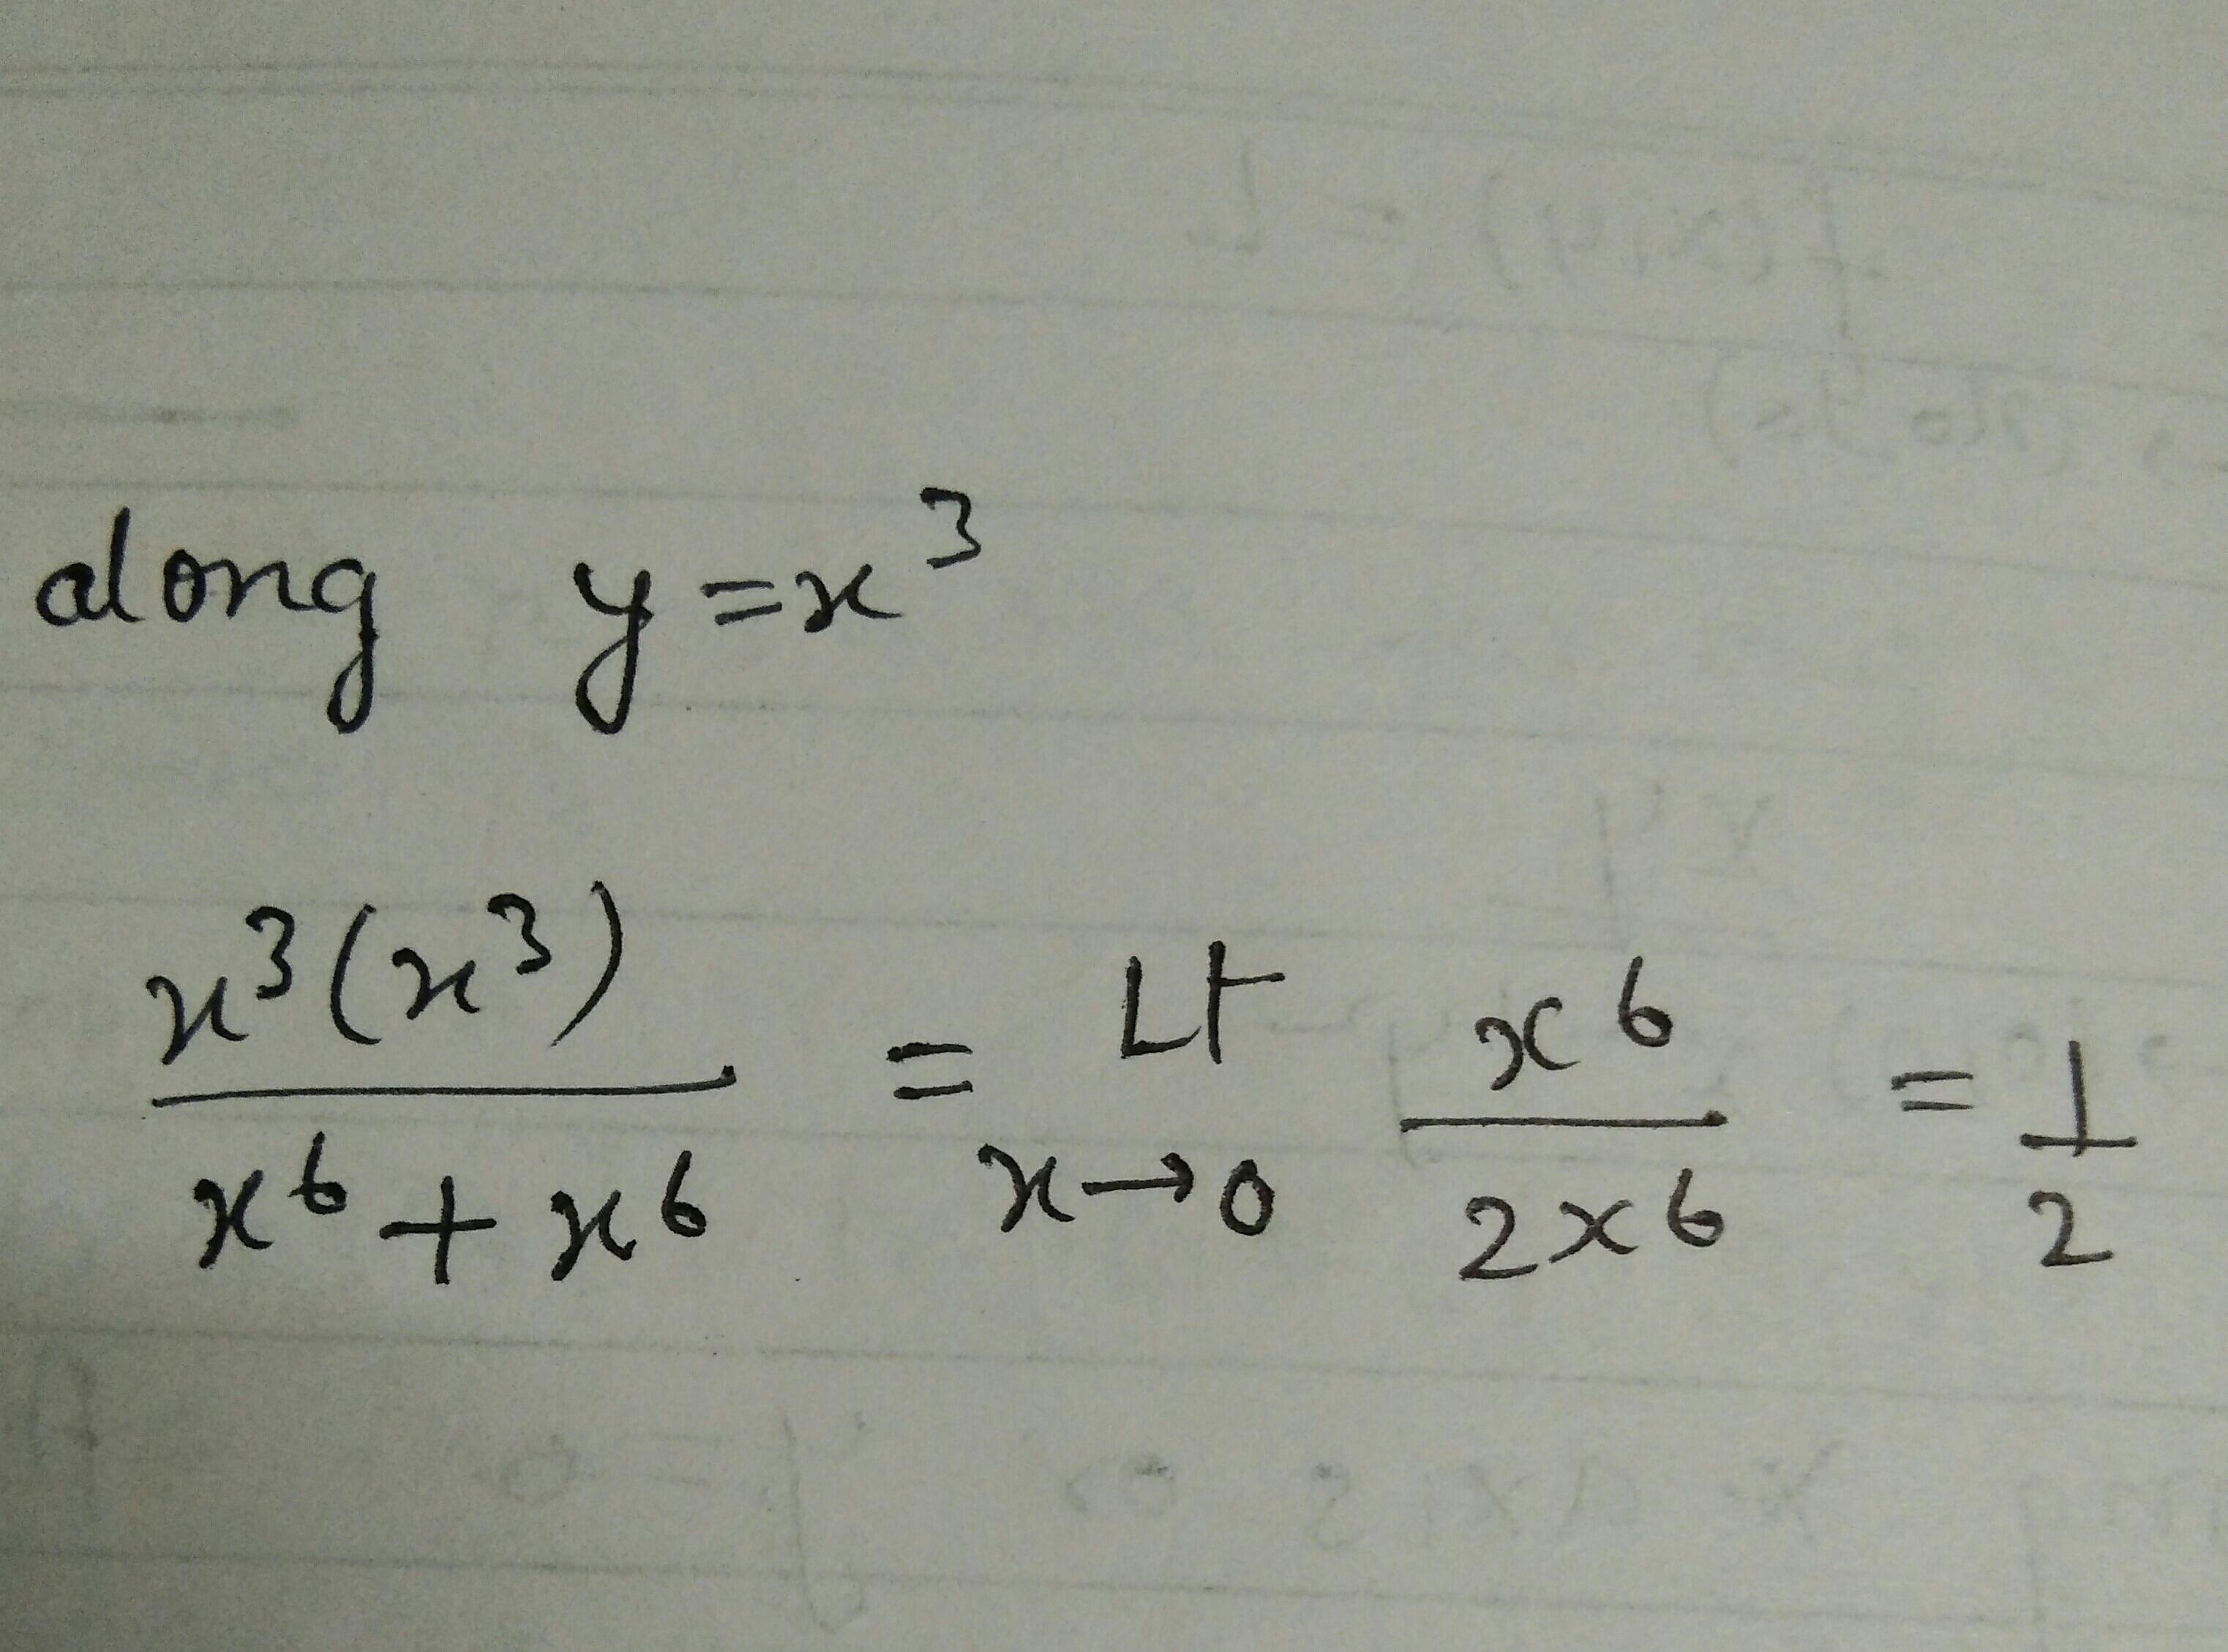 along y=x³
x³(x³)/x⁶+x⁶ = Lt x→0 x⁶/2x⁶ = 1/2